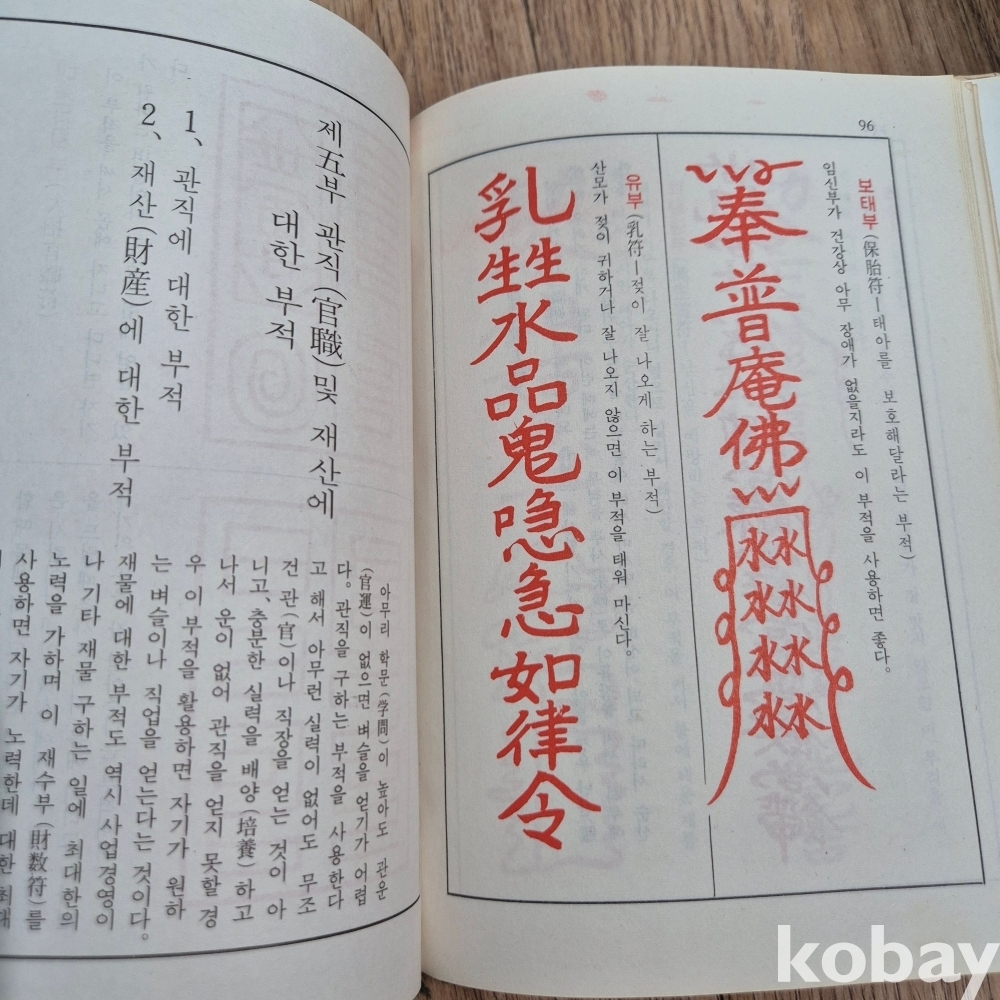 96
보태부(保胎符―태아를 보호해달라는 부적)
임신부가 건강상 아무 장애가 없을지라도 이 부적을 사용하면 좋다。
奉普庵佛
水水
水水
水水
水水
유부(乳符―젖이 잘 나오게 하는 부적)
산모가 젖이 귀하거나 잘 나오지 않으면 이 부적을 태워 마신다。
乳生生水品鬼喼急如律令
제五부 관직(官職) 및 재산에
대한 부적
1、관직에 대한 부적
2、재산(財産)에 대한 부적
아무리 학문(学問)이 높아도 관운
(官運)이 없으면 벼슬을 얻기가 어렵
다。관직을 구하는 부적을 사용한다
고 해서 아무런 실력이 없어도 무조
건 관(官)이나 직장을 얻는 것이 아
니고、충분한 실력을 배양(培養)하고
나서 운이 없어 관직을 얻지 못할 경
우 이 부적을 활용하면 자기가 원하
는 벼슬이나 직업을 얻는다는 것이다。
재물에 대한 부적도 역시 사업경영이
나 기타 재물 구하는 일에 최대한의
노력을 가하며 이 재수부(財数符)를
사용하면 자기가 노력한데 대한 최대
kobay